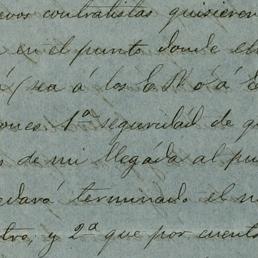 vos contratistas quisieren
en el punto donde el
(sea á los E.
ones: 1ª seguridád de q
s de mi llegáda al pu
edará terminado el n
tro, y 2ª que por cuenta